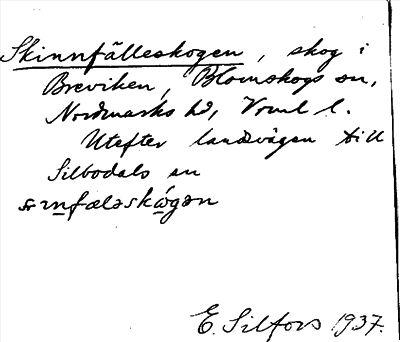 Skinnfälleskogen, skog i
Breviken, Blomskogs sn,
Nordmarks hd, Värml l.
Utefter landsvägen till
Silbodals sn
E. Silfors 1937.